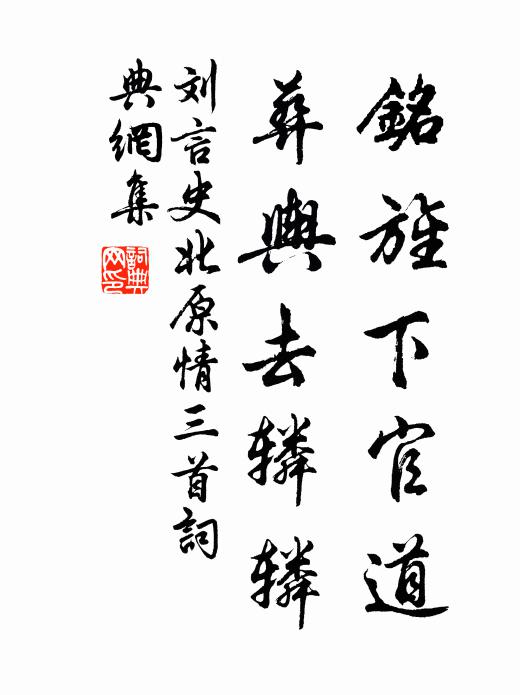 銘旌下官道
葬輿去辚辚
刘言史北原情三首詞
典網集
詞典
网印